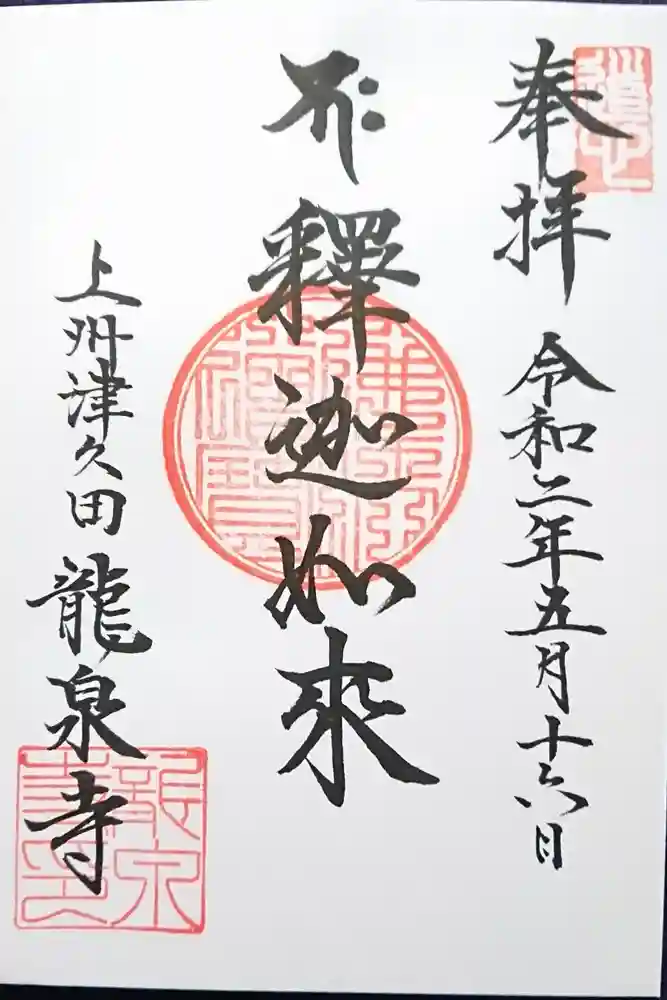 奉拝
令和二年五月十六日
釋迦如来
上州津久田龍泉寺